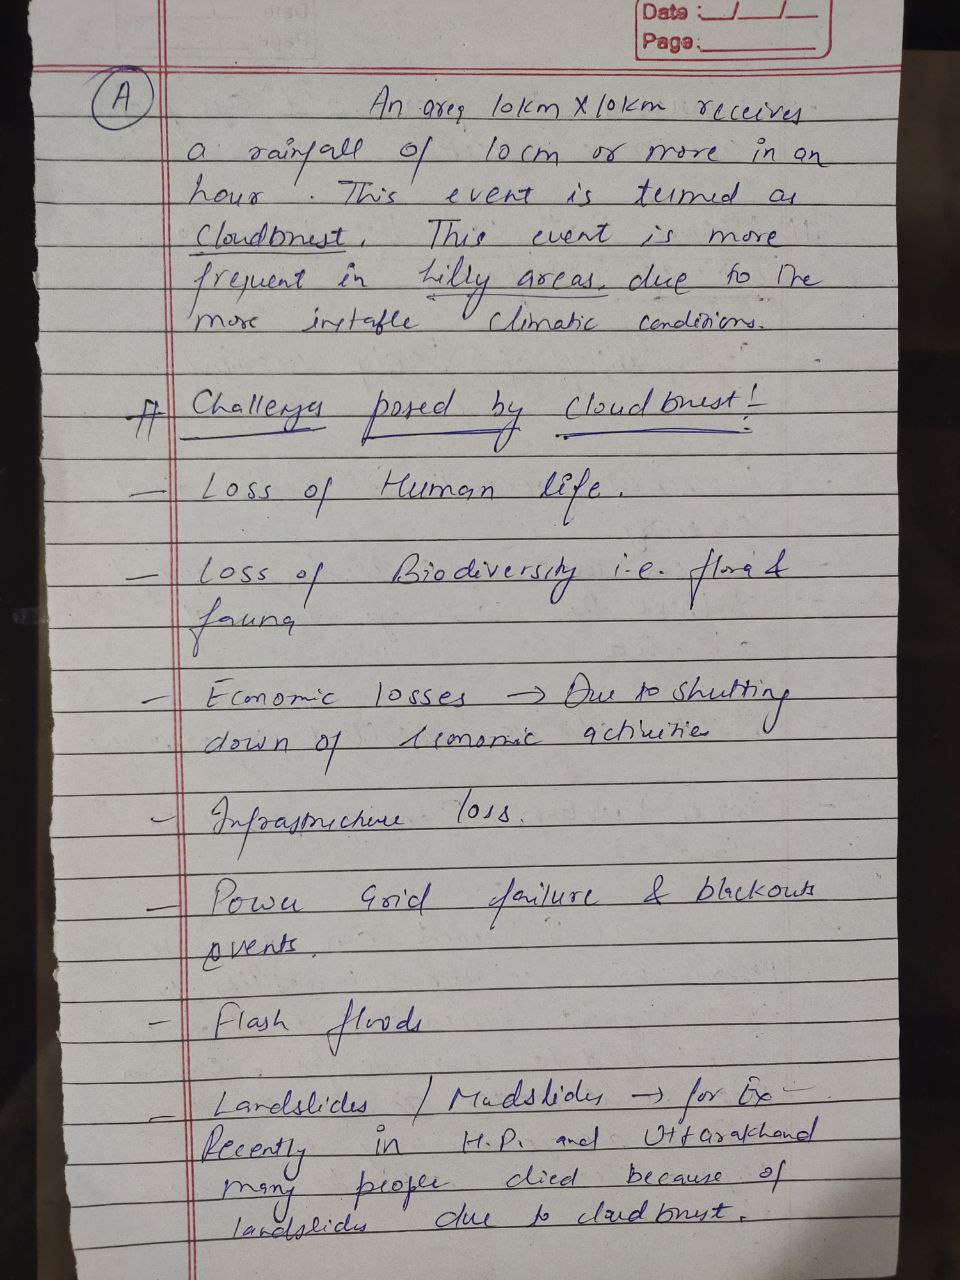 Date : __/__/__
Page:
A
An area 10km X 10km receives
a rainfall of 10 cm or more in an
hour. This event is termed as
Cloudbrust. This event is more
frequent in hilly areas. due to the
more instable climatic conditions.
# Challenges posed by cloud brust!
- Loss of Human life.
- Loss of Biodiversity i.e. flora &
fauna
- Economic losses → Due to shutting
down of economic activities
- Infrastructure loss.
- Power Grid failure & blackouts
events.
- Flash floods
- Landslides / Mudslides → for Ex -
Recently in H.P. and Uttarakhand
many people died because of
landslides due to cloud brust.